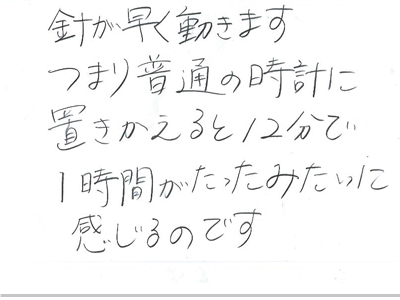 針が早く動きます
つまり普通の時計に
置きかえると12分で
1時間がたったみたいに
感じるのです